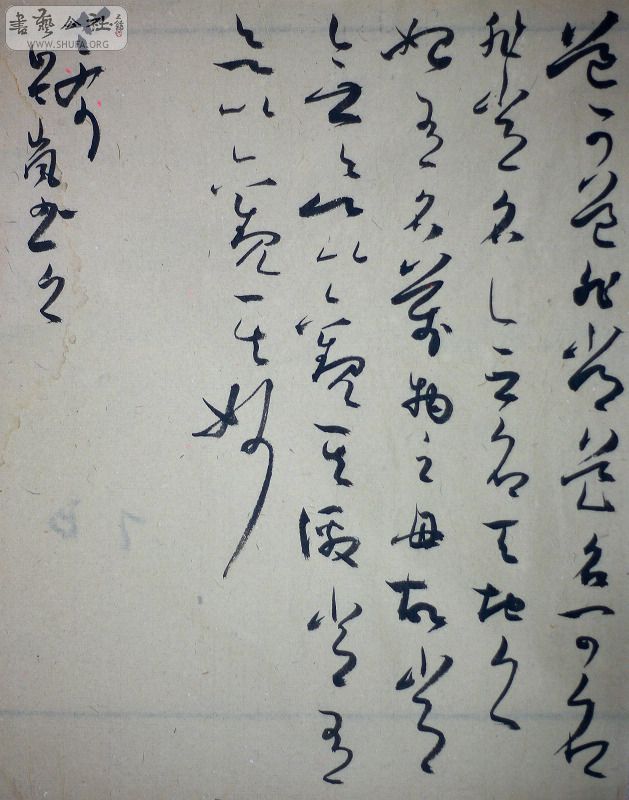 道可道非常道名可名
非常名无名天地之
始有名萬物之母故常
无欲以觀其徼常有
欲以觀其妙
岚书之
書藝公社
WWW.SHUFA.ORG